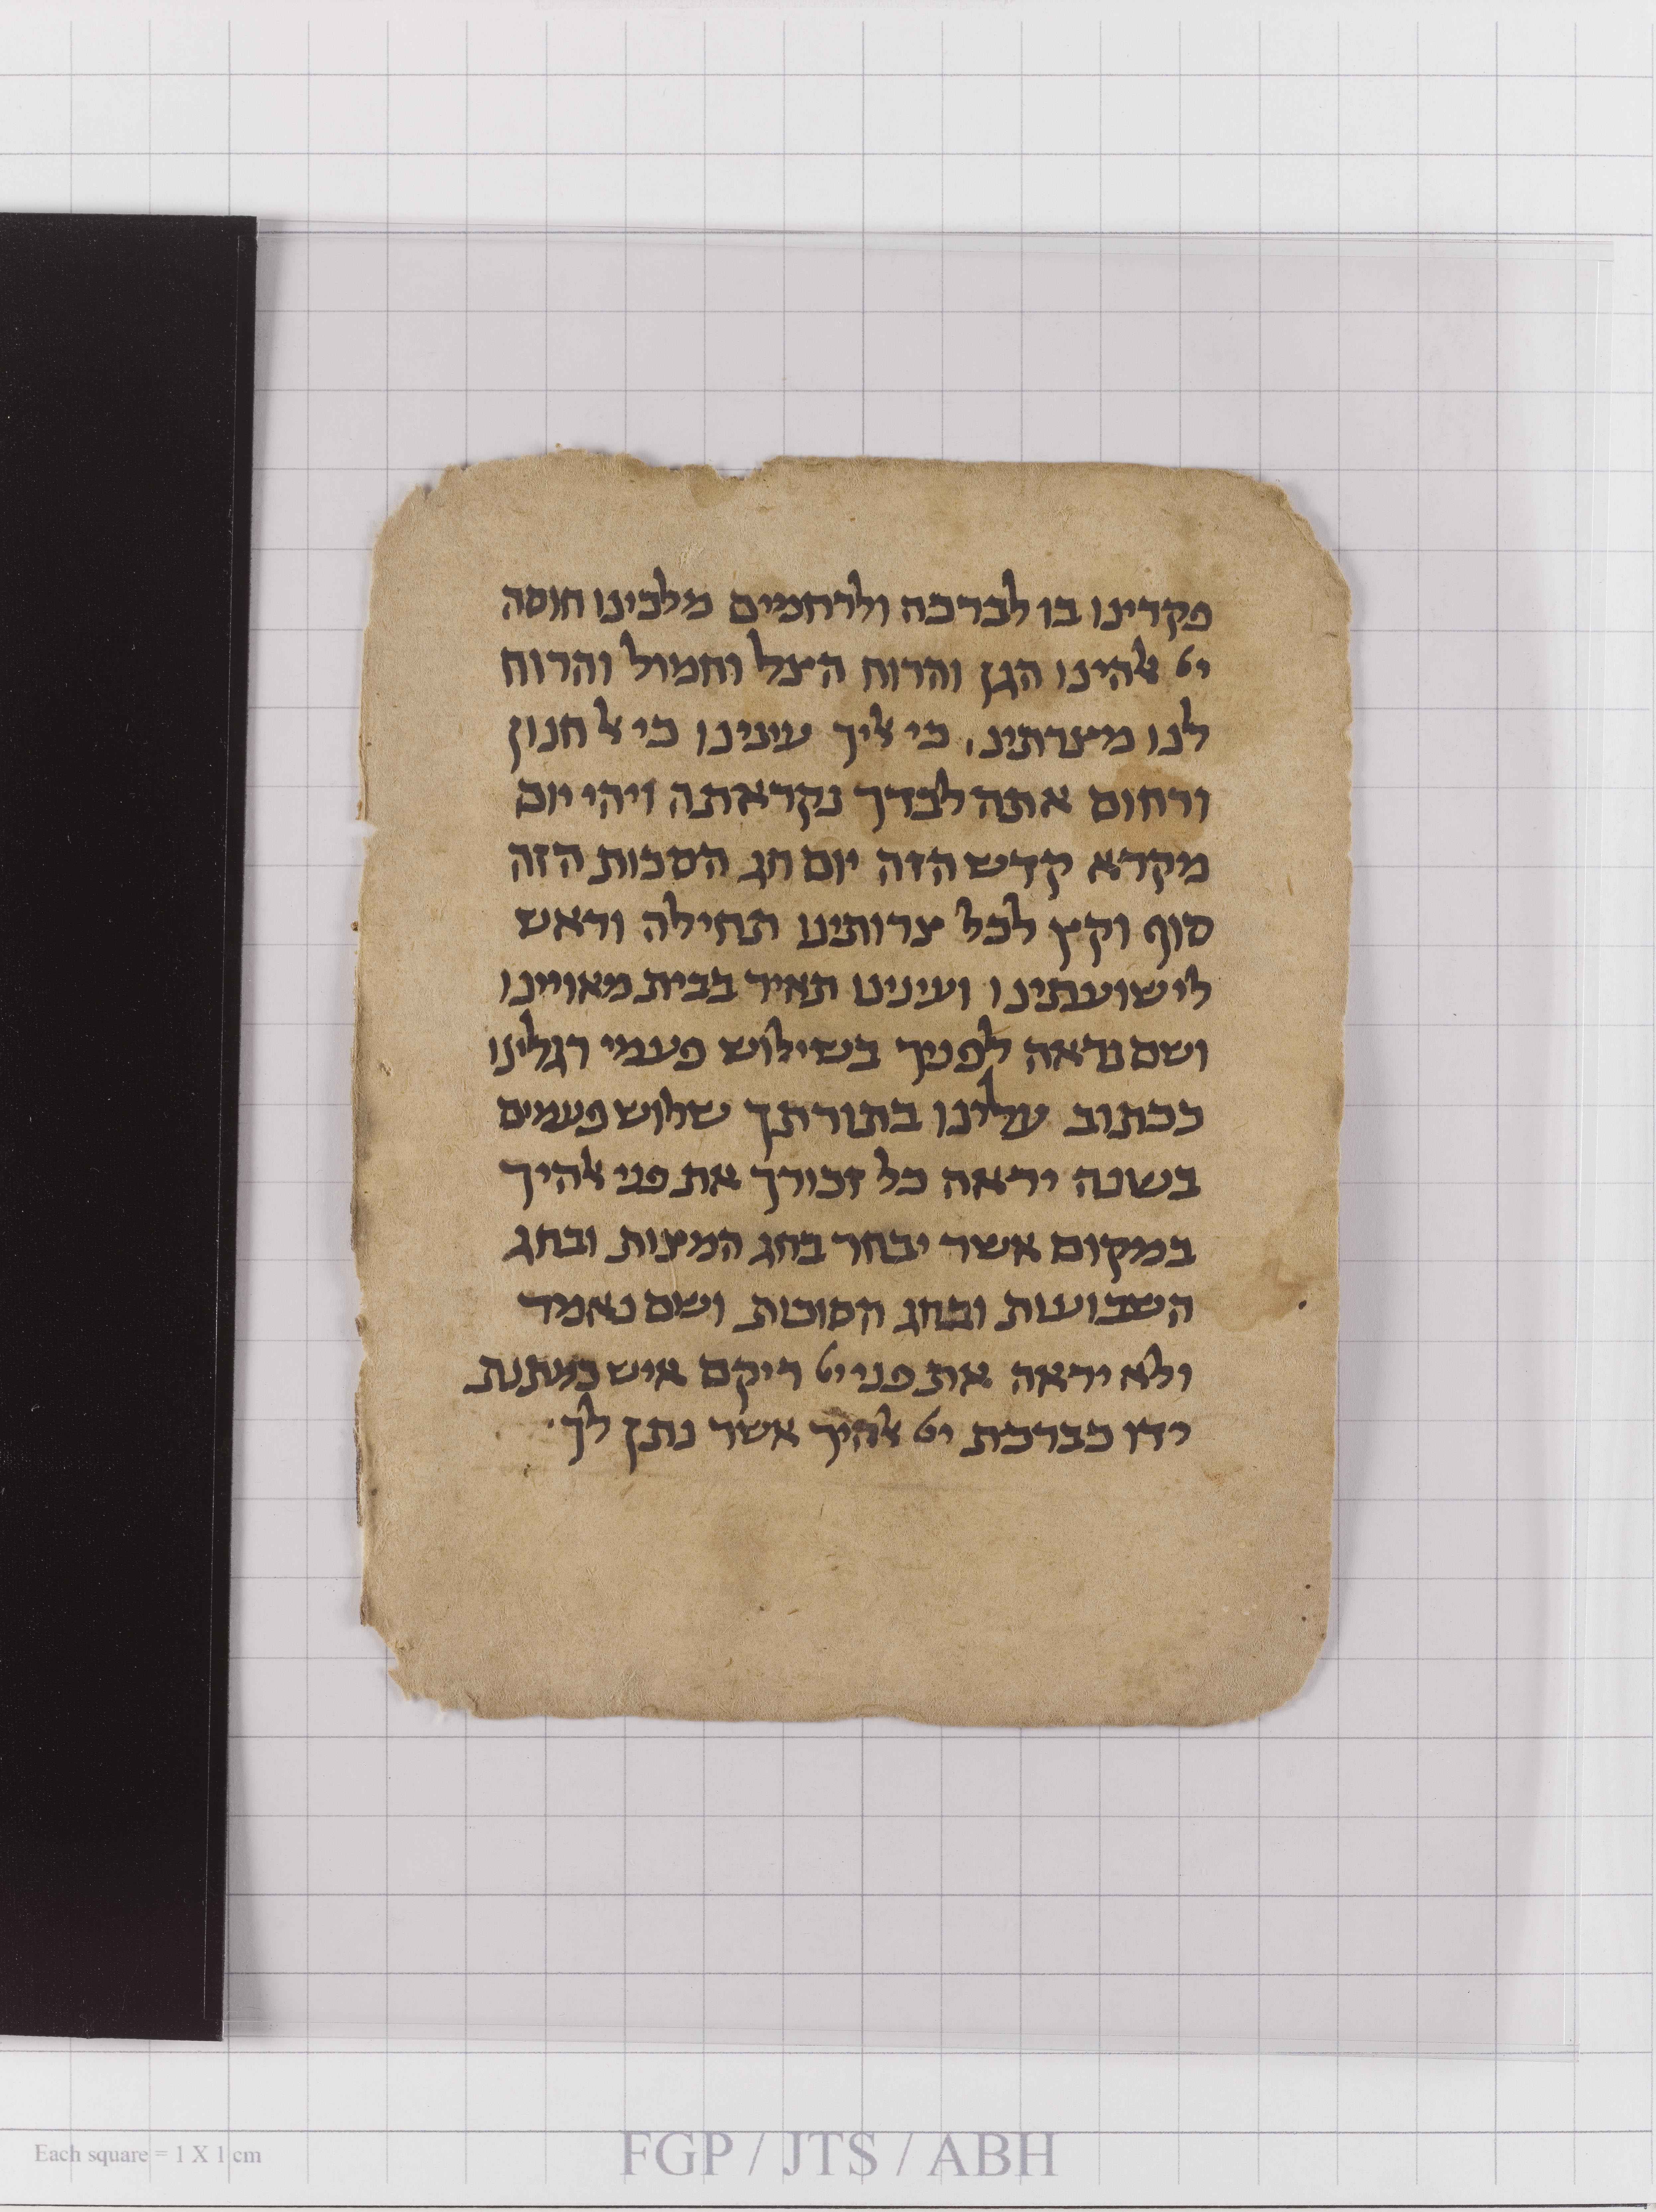 פקדינו בו לברכה ולרחמים מלכינו חוסה
יט אלהינו הגן והרוח הצל וחמול והרוח
לנו מיצרתינו כי אליך עינינו כי אל חנון
ורחום אתה לבדך נקראתה ויהי יום
מקרא קדש הזה יום חג הסכות הזה
סוף וקץ לכל צרותינו תחילה וראש
לישועתינו ועינינו תאיר בבית מאויינו
ושם נראה לפניך בשילוש פעמי רגלינו
ככתוב עלינו בתורתך שלוש פעמים
בשנה יראה כל זכורך את פני אלהיך
במקום אשר יבחר בחג המצות ובחג
השבועות ובחג הסוכות ושם נאמר
ולא יראה את פני יט ריקם איש כמתנת
ידו כברכת יט אלהיך אשר נתן לך
Each square = 1 X 1 cm
FGP / JTS / ABH